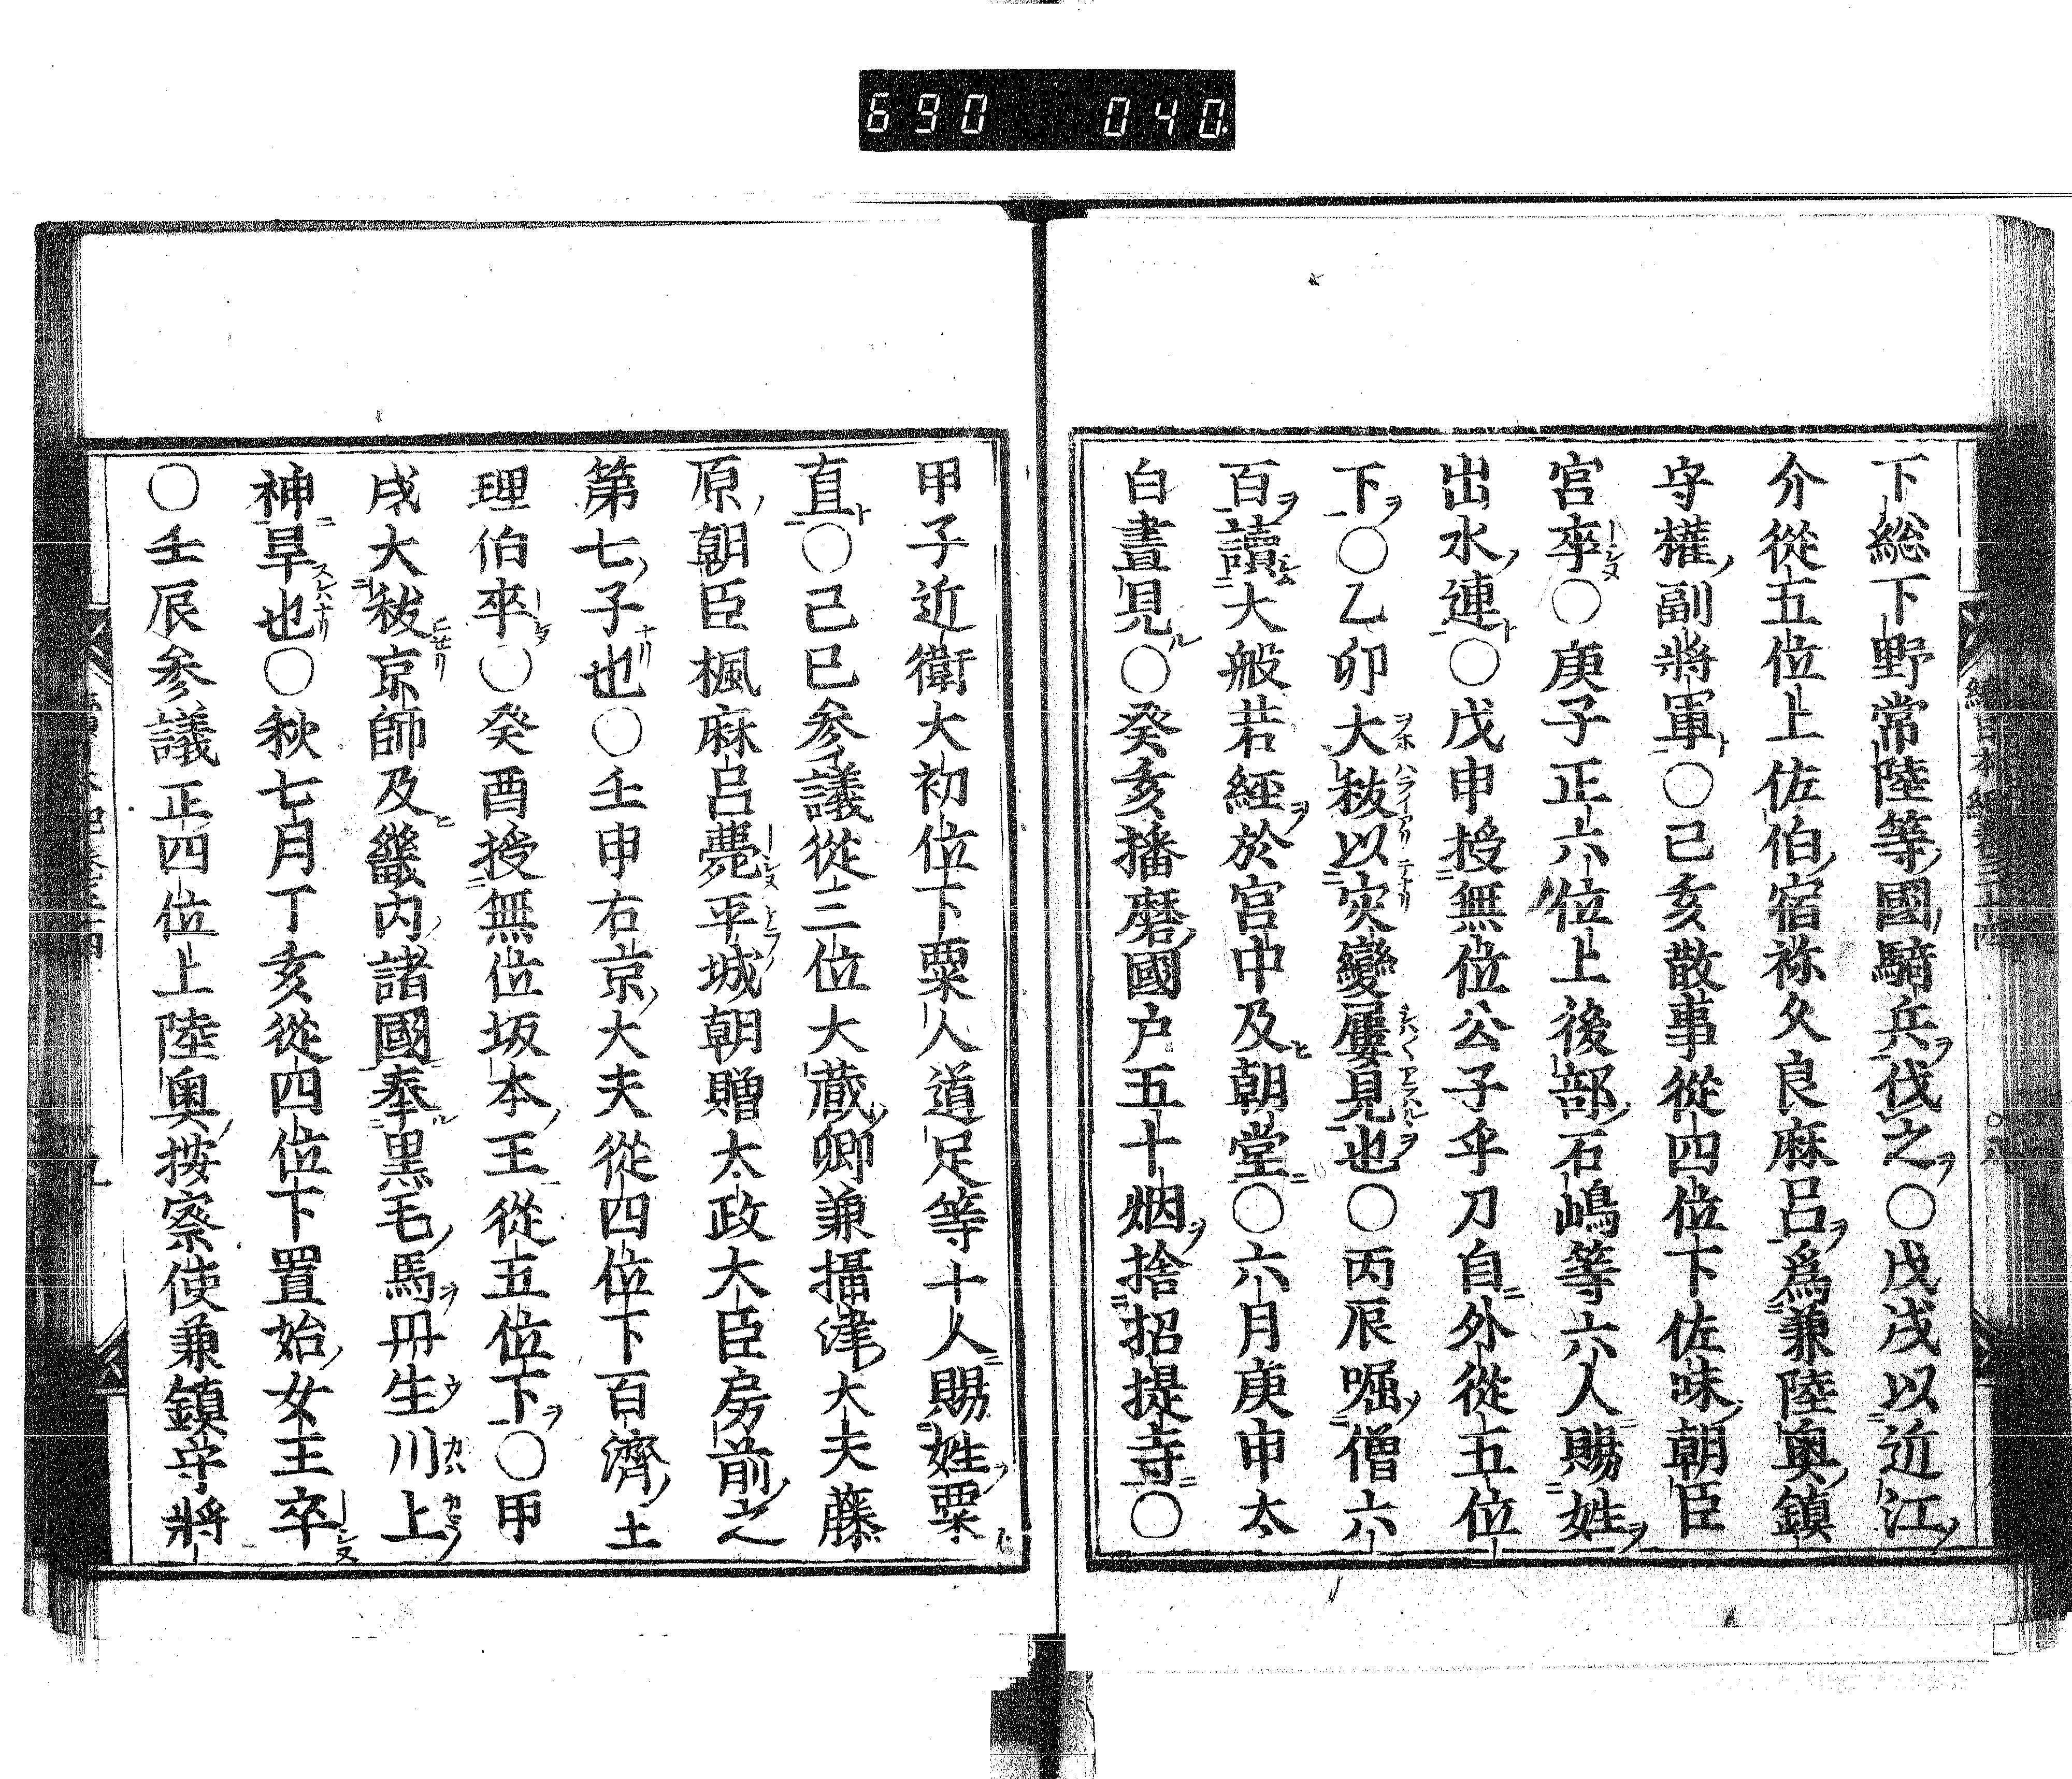 690 040
下総下野常陸等國騎兵伐之〇戊戌以近江
介從五位上佐伯宿祢久良麻呂爲兼陸奥鎮
守權副將軍〇己亥散事從四位下佐味朝臣
宮卒〇庚子正六位上後部石嶋等六人賜姓
出水連〇戊申授無位公子乎刀自外從五位
下〇乙卯大秡以灾變屢見也〇丙辰啒僧六
百讀大般若經於宮中及朝堂〇六月庚申太
白晝見〇癸亥播磨國户五十烟捨招提寺〇
甲子近衛大初位下粟人道足等十人賜姓粟
直〇己巳参議從三位大蔵卿兼攝津大夫藤
原朝臣楓麻呂薨平城朝贈太政大臣房前之
第七子也〇壬申右京大夫從四位下百濟土
理伯卒〇癸酉授無位坂本王從五位下〇甲
戌大秡京師及畿内諸國奉黒毛馬丹生川上
神旱也〇秋七月丁亥從四位下置始女王卒
〇壬辰参議正四位上陸奥按察使兼鎮守將